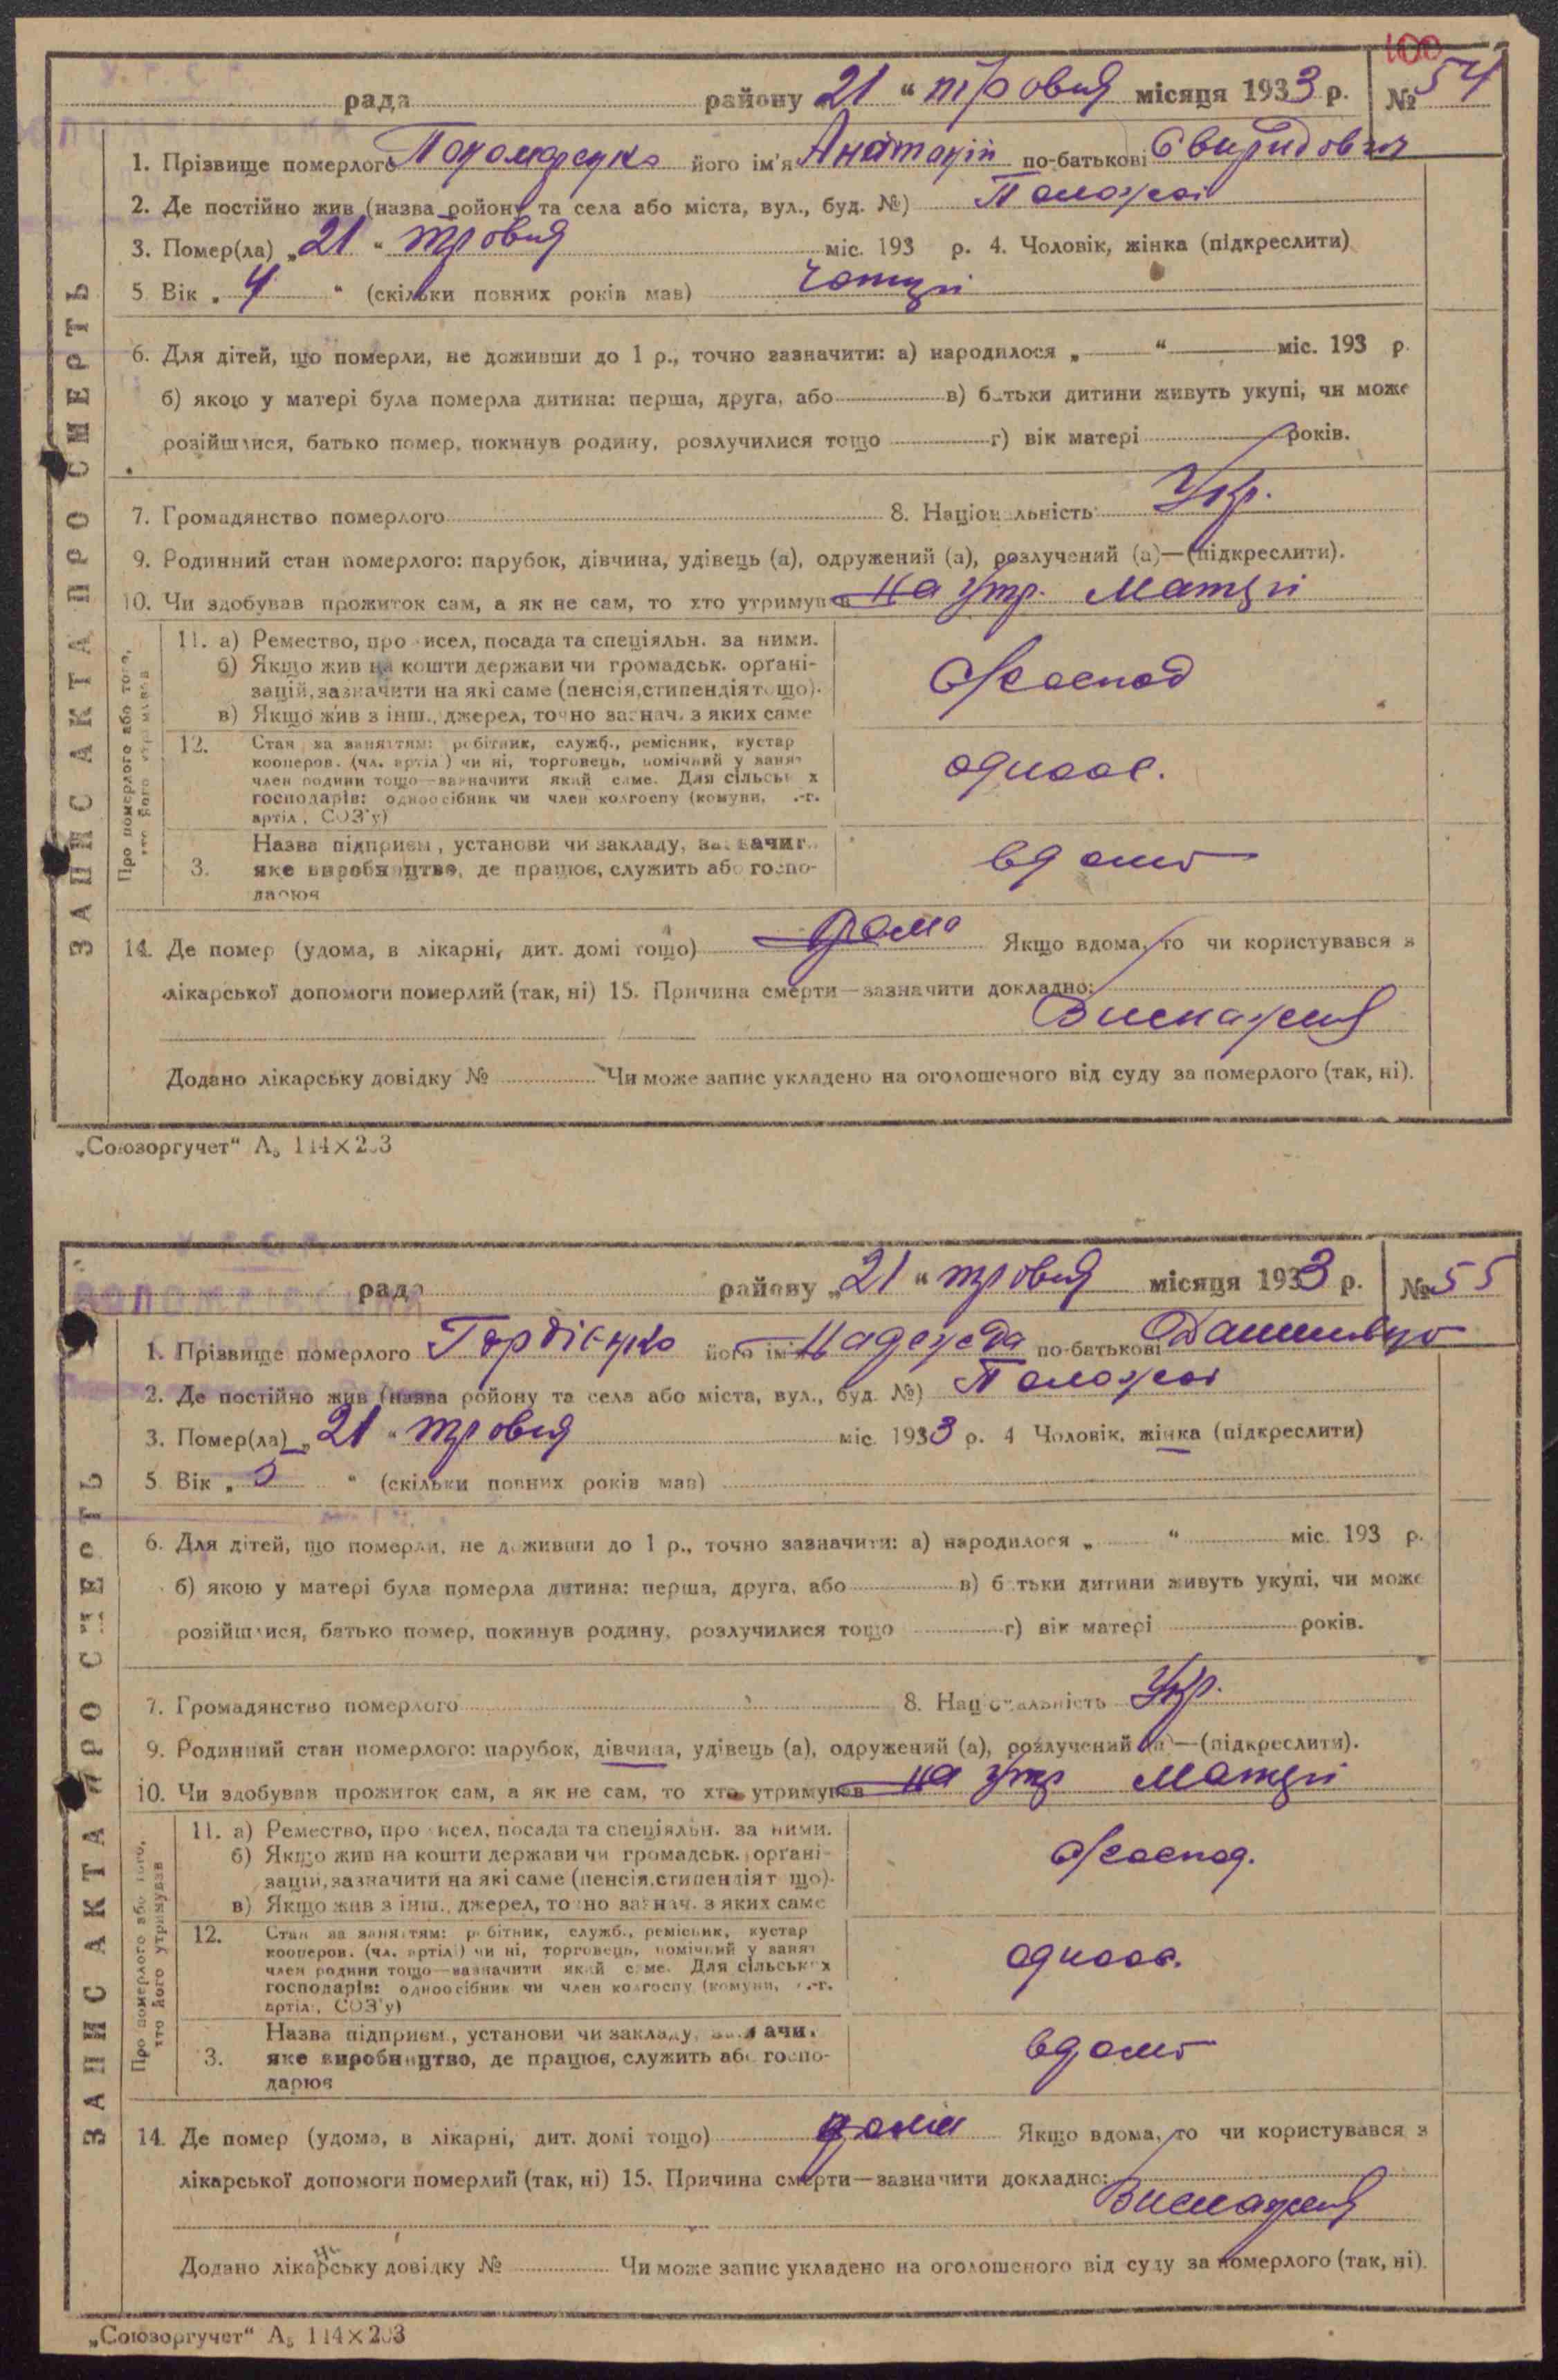 100
рада району 21 " травня місяця 1933 р. № 54
1. Прізвище померлого його ім'я Анатолій по-батькові Свиридович
2. Де постійно жив (назва району та села або міста, вул., буд. №) Положаї
3. Помер(ла) „21 " травня міс. 193 р. 4. Чоловік, жінка (підкреслити)
5. Вік „ 4 " (скільки повних років мав) чотирі
6. Для дітей, що померли, не доживши до 1 р., точно зазначити: а) народилося „ " міс. 193 р.
б) якою у матері була померла дитина: перша, друга, або в) батьки дитини живуть укупі, чи може
розійшлися, батько помер, покинув родину, розлучилися тощо г) вік матері років.
7. Громадянство померлого 8. Національність Укр.
9. Родинний стан померлого: парубок, дівчина, удівець (а), одружений (а), розлучений (а)—(підкреслити).
10. Чи здобував прожиток сам, а як не сам, то хто утримував на утр. матері
ЗАПИС АКТА ПРО СМЕРТЬ
Про померлого або того, хто його утримував
11. а) Ремество, промисел, посада та спеціяльн. за ними.
б) Якщо жив на кошти держави чи громадськ. органі-
зацій, зазначити на які саме (пенсія, стипендія тощо).
в) Якщо жив з інш., джерел, точно зазнач. з яких саме
12. Стан за заняттям: робітник, служб., ремісник, кустар
кооперов. (чл. артіл.) чи ні, торговець, помічний у занят
член родини тощо—зазначити який саме. Для сільських
господарів: одноосібник чи член колгоспу (комуни, с.-г.
артіл., СОЗ'у)
одноос.
Назва підприєм., установи чи закладу, зазначит.
3. яке виробництво, де працює, служить або госпо-
дарює
вдома
14. Де помер (удома, в лікарні, дит. домі тощо) дома Якщо вдома, то чи користувався з
лікарської допомоги померлий (так, ні) 15. Причина смерти—зазначити докладно:
Виснаження
Додано лікарську довідку № Чи може запис укладено на оголошеного від суду за померлого (так, ні).
„Союзоргучет" А₅ 114×203
рада району „21 " травня місяця 1933 р. № 55
1. Прізвище померлого Гордієнко його ім'я Надежда по-батькові
2. Де постійно жив (назва району та села або міста, вул., буд. №) Положаї
3. Помер(ла) „ 21 " травня міс. 1933 р. 4 Чоловік, жінка (підкреслити)
5. Вік „ 5 " (скільки повних років мав)
6. Для дітей, що померли, не доживши до 1 р., точно зазначити: а) народилося „ " міс. 193 р.
б) якою у матері була померла дитина: перша, друга, або в) батьки дитини живуть укупі, чи може
розійшлися, батько помер, покинув родину, розлучилися тощо г) вік матері років.
7. Громадянство померлого 8. Національність Укр.
9. Родинний стан померлого: парубок, дівчина, удівець (а), одружений (а), розлучений (а)—(підкреслити).
10. Чи здобував прожиток сам, а як не сам, то хто утримував на утр матері
ЗАПИС АКТА ПРО СМЕРТЬ
Про померлого або того, хто його утримував
11. а) Ремество, промисел, посада та спеціяльн. за ними.
б) Якщо жив на кошти держави чи громадськ. органі-
зацій, зазначити на які саме (пенсія, стипендія тощо).
в) Якщо жив з інш., джерел, точно зазнач. з яких саме
12. Стан за заняттям: робітник, служб., ремісник, кустар
кооперов. (чл. артіл.) чи ні, торговець, помічний у занят
член родини тощо—зазначити який саме. Для сільських
господарів: одноосібник чи член колгоспу (комуни, с.-г.
артіл., СОЗ'у)
одноос.
Назва підприєм., установи чи закладу, зазначи.
3. яке виробництво, де працює, служить або госпо-
дарює
вдома
14. Де помер (удома, в лікарні, дит. домі тощо) дома Якщо вдома, то чи користувався з
лікарської допомоги померлий (так, ні) 15. Причина смерти—зазначити докладно:
Виснаження
Додано лікарську довідку № Чи може запис укладено на оголошеного від суду за померлого (так, ні).
„Союзоргучет" А₅ 114×203